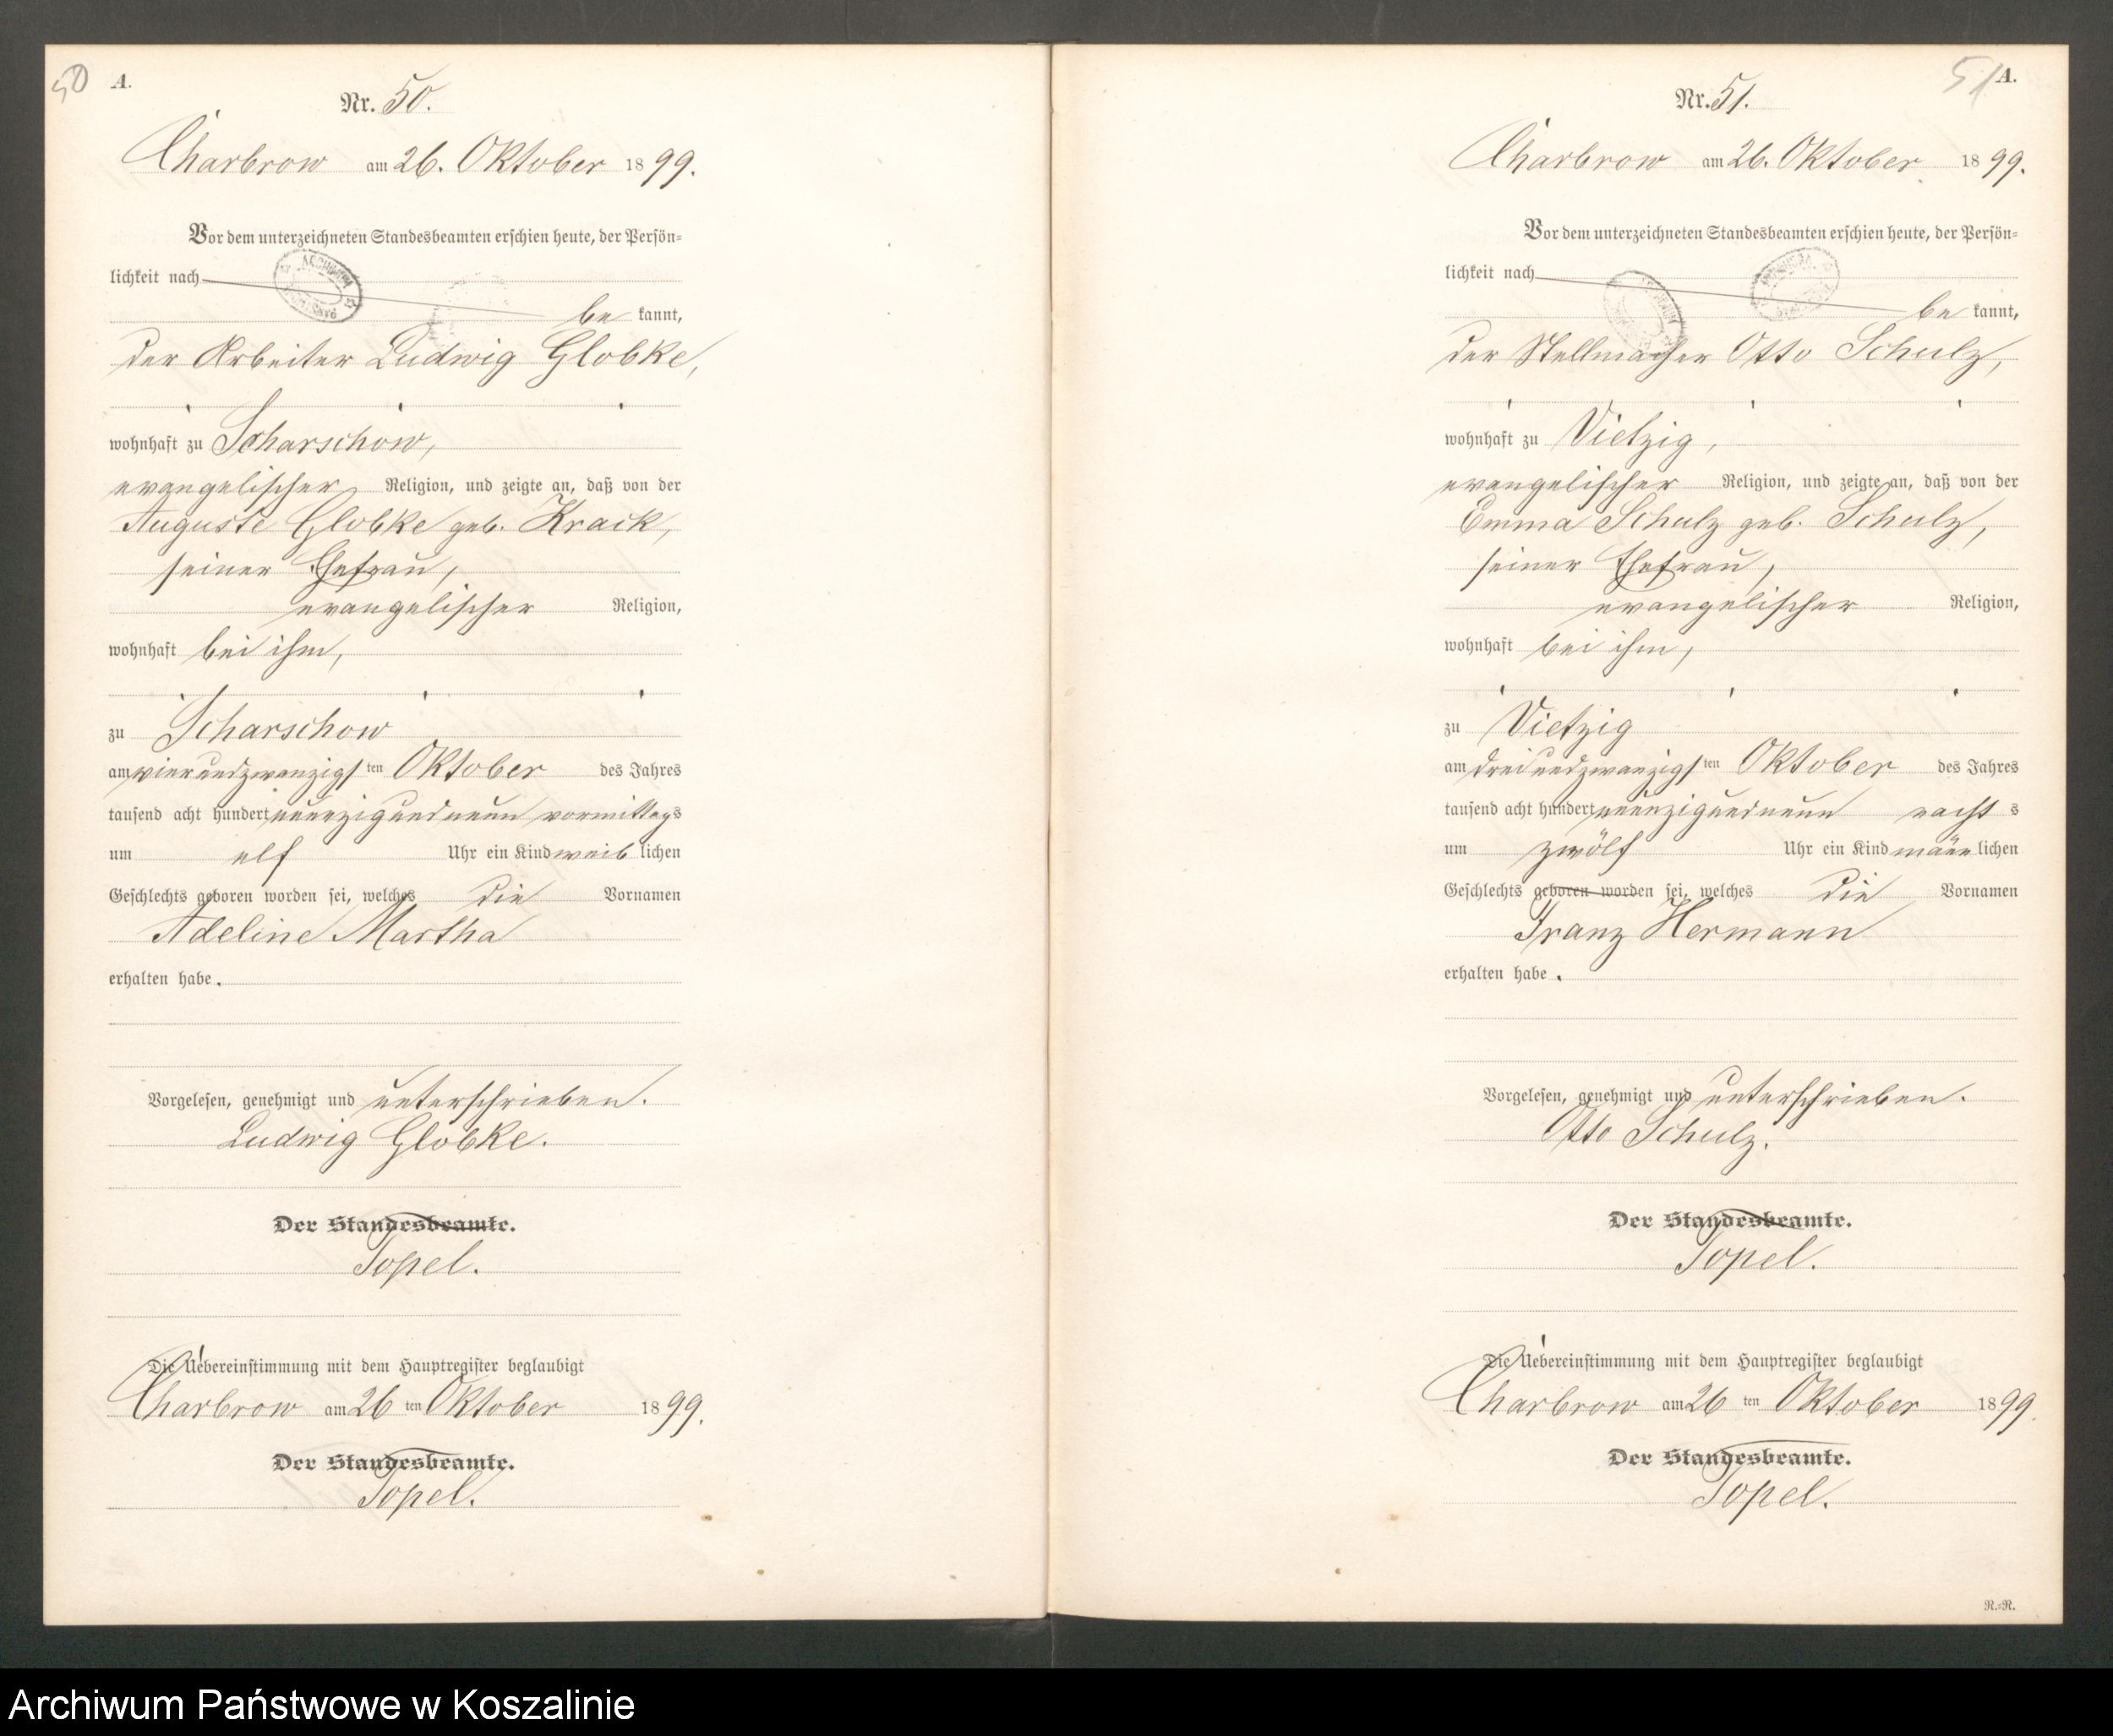 50
A.
Nr. 50.
Charbrow am 26. Oktober 1899.
Vor dem unterzeichneten Standesbeamten erschien heute, der Persön=
lichkeit nach
be kannt,
der Arbeiter Ludwig Globke,
wohnhaft zu Scharschow,
evangelischer Religion, und zeigte an, daß von der
Auguste Globke geb. Krack,
seiner Ehefrau,
evangelischer Religion,
wohnhaft bei ihm,
zu Scharschow
am vierundzwanzigsten Oktober des Jahres
tausend acht hundert neunzigundneun vormittags
um elf Uhr ein Kind weiblichen
Geschlechts geboren worden sei, welches die Vornamen
Adeline Martha
erhalten habe.
Vorgelesen, genehmigt und unterschrieben.
Ludwig Globke.
Der Standesbeamte.
Topel.
Die Uebereinstimmung mit dem Hauptregister beglaubigt
Charbrow am 26ten Oktober 1899.
Der Standesbeamte.
Topel.
51
A.
Nr. 51.
Charbrow am 26. Oktober 1899.
Vor dem unterzeichneten Standesbeamten erschien heute, der Persön=
lichkeit nach
be kannt,
der Stellmacher Otto Schulz,
wohnhaft zu Vietzig,
evangelischer Religion, und zeigte an, daß von der
Emma Schulz geb. Schulz,
seiner Ehefrau,
evangelischer Religion,
wohnhaft bei ihm,
zu Vietzig
am dreiundzwanzigsten Oktober des Jahres
tausend acht hundert neunzigundneun nachts
um zwölf Uhr ein Kind männlichen
Geschlechts geboren worden sei, welches die Vornamen
Franz Hermann
erhalten habe.
Vorgelesen, genehmigt und unterschrieben.
Otto Schulz.
Der Standesbeamte.
Topel.
Die Uebereinstimmung mit dem Hauptregister beglaubigt
Charbrow am 26ten Oktober 1899.
Der Standesbeamte.
Topel.
R.=R.
Archiwum Państwowe w Koszalinie